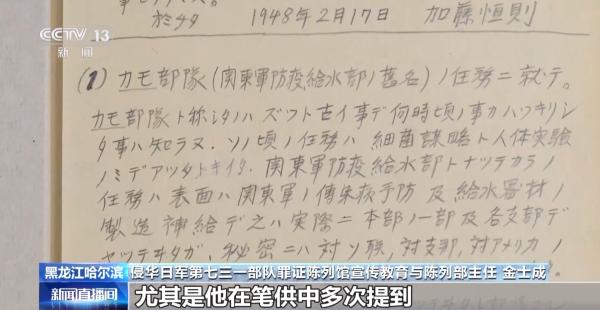 CCTV 13
新闻
於チタ 1948年2月17日 加藤恒則
(1) カモ部隊(関東軍防疫給水部ノ舊名)ノ任務ニ就テ。
カモ部隊ト称シタノハズツト古イ事デ何時頃ノ事カハツキリシ
タ事ハ知ラヌ. ソノ頃ノ任務ハ 細菌謀略ト人体実験
ノミデアツタトキイタ. 関東軍防疫給水部トナツテカラノ
任務ハ表面ハ関東軍ノ傳染病予防及給水器材ノ
製造補給デ之ハ実際ニ本部ノ一部及各支部デ
ヤツテヰタガ、秘密ニハ対ソ聯,対支那,対アメリカノ
黑龙江哈尔滨 侵华日军第七三一部队罪证陈列馆宣传教育与陈列部主任 金士成
新闻直播间 尤其是他在笔供中多次提到